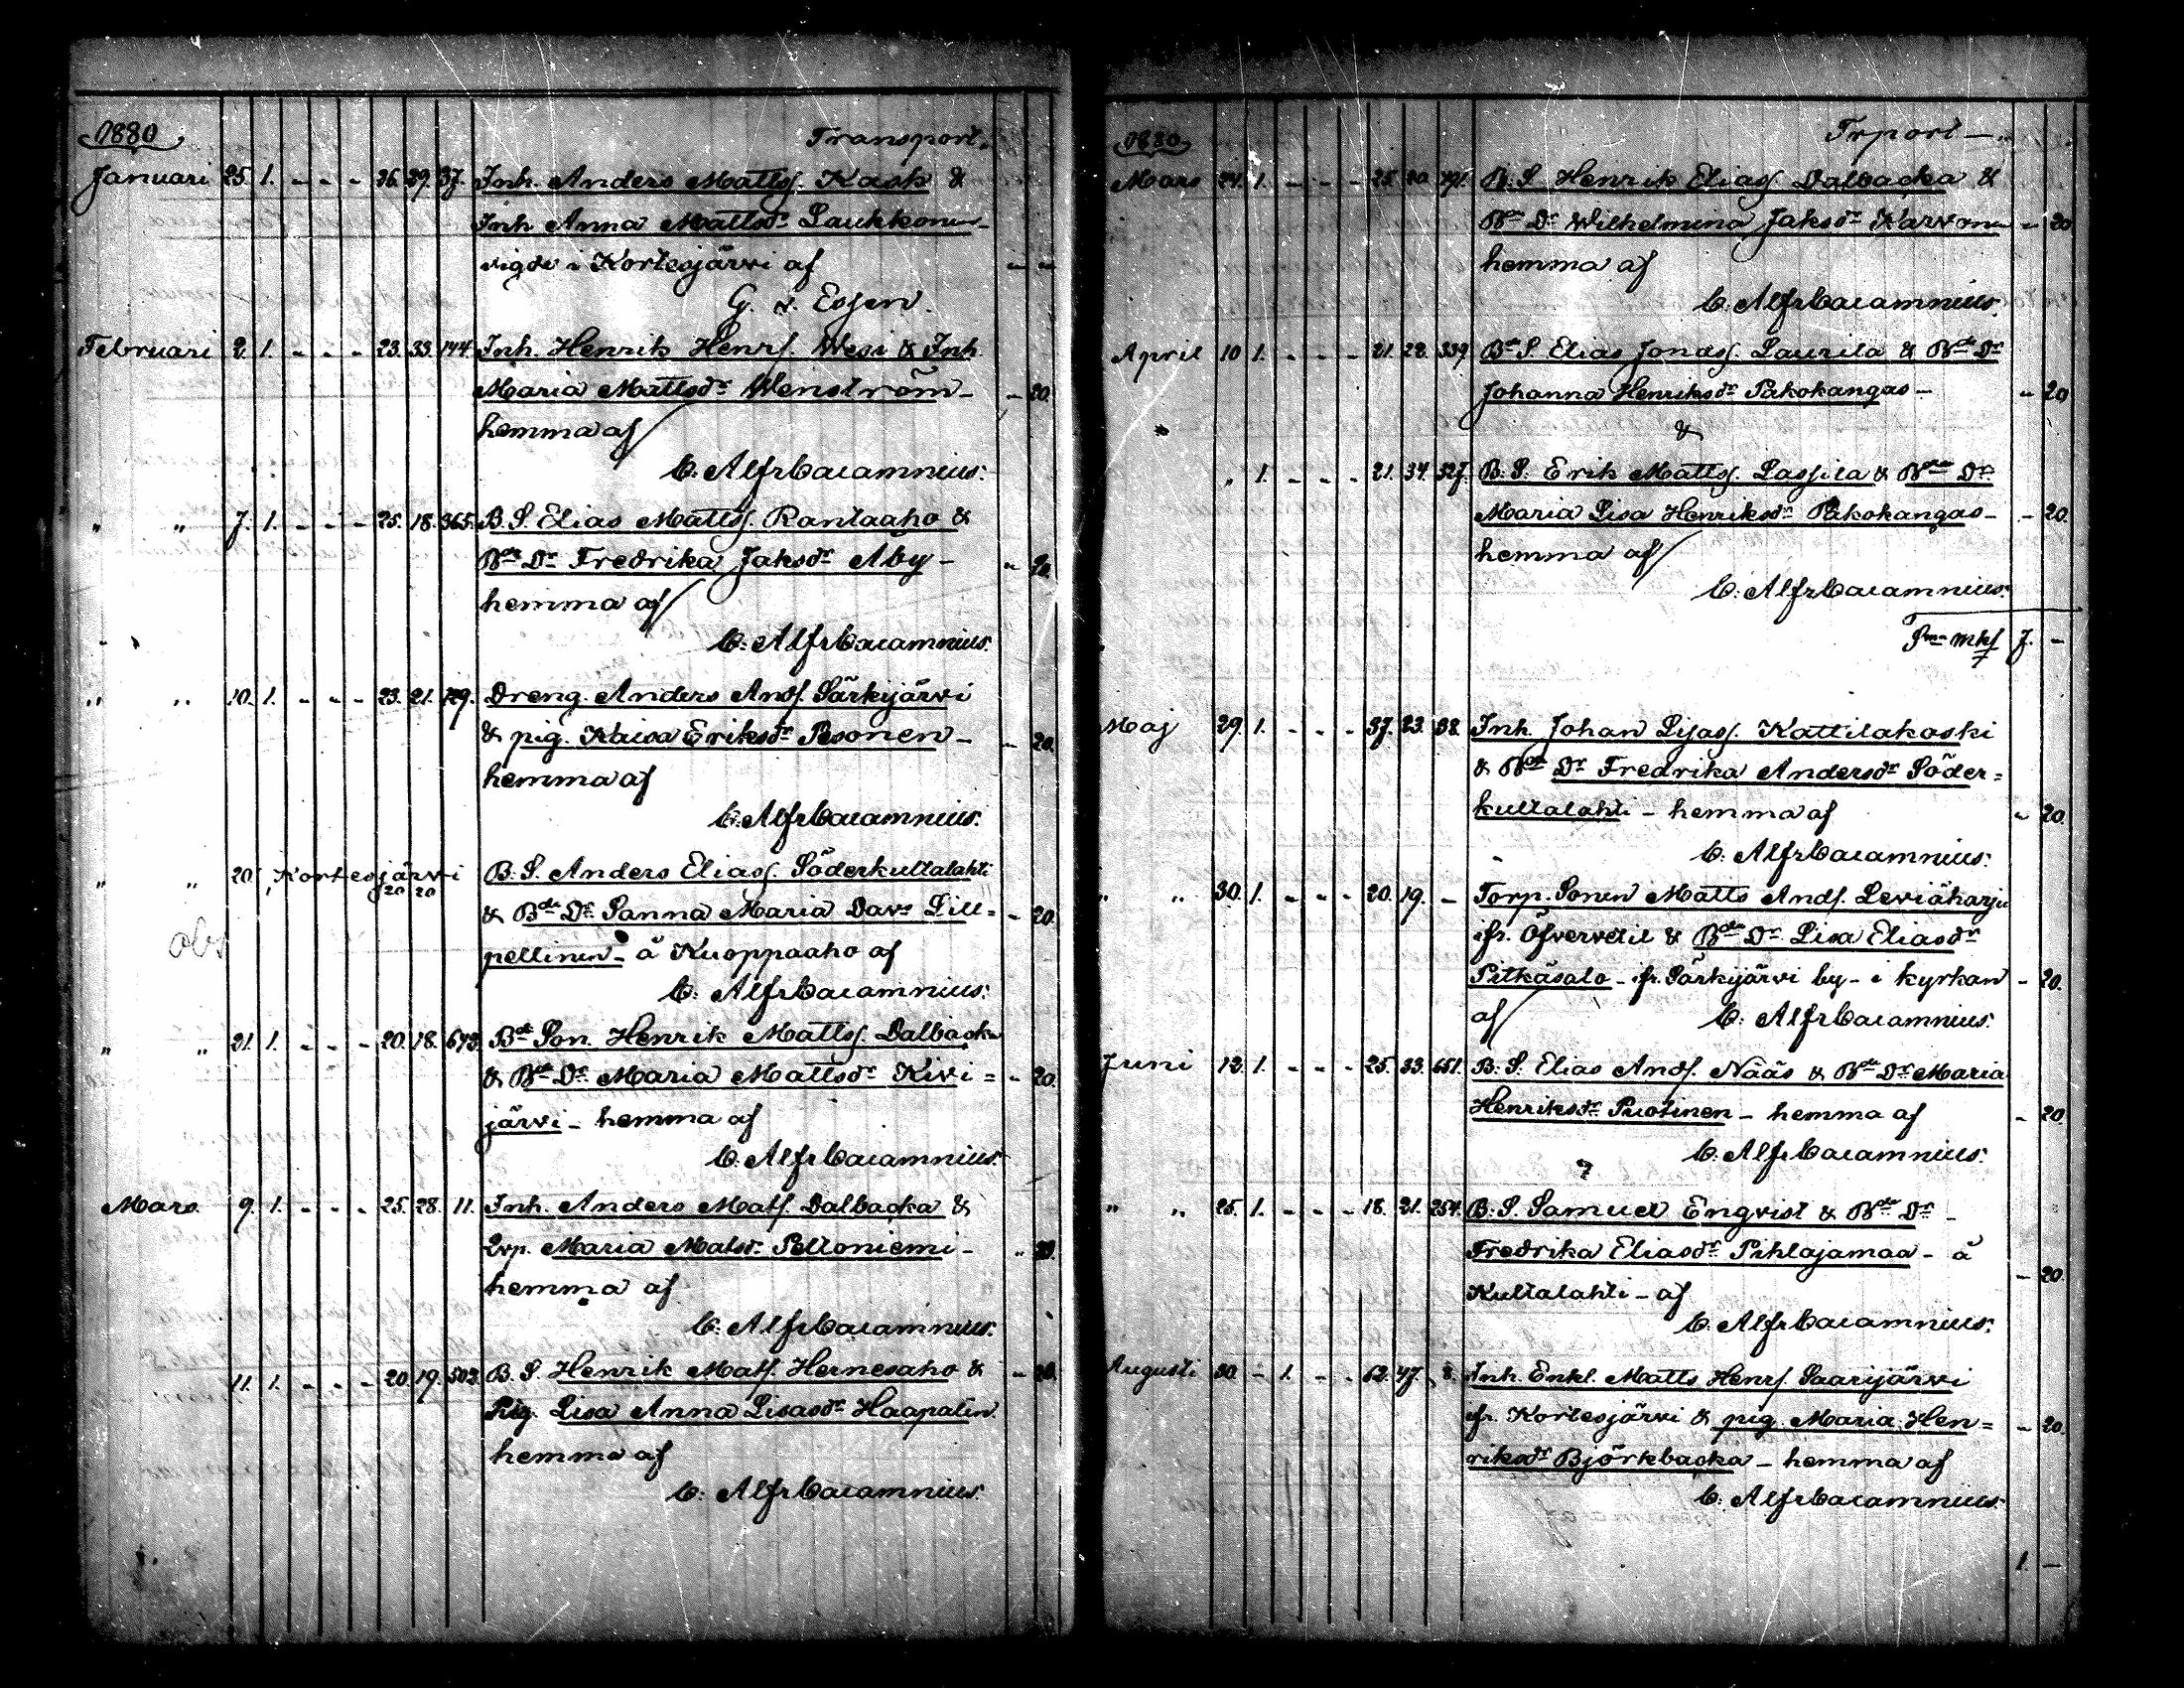 1880
Transport.
Januari 25. 1. - - - 36. 39. 37. Inh. Anders Mattss. Kask &
Inh Anna Mattsdr Laukkonen -
vigde i Kortesjärvi af " "
G. v. Essen.
Februari 2. 1. - - - 23. 33. 144 Inh. Henrik Henrs. Wesi & Inh.
Maria Mattsdr Wenström - - 20.
hemma af
C. Alfr Cajamnius.
" " 7. 1. - - - 25. 18. 365. B. S. Elias Mattss. Rantaaho &
Bde Dr Fredrika Jaksdr Aby - " 20.
hemma af
C. Alfr Cajamnius.
" " 10. 1. - - - 23. 21. 129. Dreng. Anders Ands. Särkijärvi
& pig. Kaisa Eriksdr Pesonen - - 20.
hemma af
C. Alfr Cajamnius.
" " 20. Kortesjärvi B. S. Anders Eliass. Söderkultalahti
20 20
& Bde Dr Sanna Maria Davs Lill= - 20.
obs
pellinen - å Kuoppaaho af
C. Alfr Cajamnius.
" " 21. 1. - - - 20. 18. 673. Bde Son. Henrik Mattss. Dalbacka
& Bde Dr Maria Mattsdr Kivi= - 20.
järvi - hemma af
C. Alfr Cajamnius.
Mars 9. 1. - - - 25. 28. 11. Inh. Anders Mats. Dalbacka &
Maria Matsdr Peltoniemi - " 20.
hemma af
C. Alfr Cajamnius.
11. 1. - - - 20. 19. 503. B. S. Henrik Mats. Hernesaho & - 20.
Pig. Lisa Anna Lisasdr Haapalin.
hemma af
C. Alfr Cajamnius.
1880
Trport -
Mars 24. 1. - - - 25. 20. 491. B. S. Henrik Eliass Dalbacka &
Bde Dr Wilhelmina Jaksdr Karvonen - 20
hemma af
C. Alfr Cajamnius.
April 10 1. - - - 21. 22. 339. Bde S. Elias Jonass. Laurila & Bde Dr
Johanna Henriksdr Pakokangas - " 20
&
" 1. - - - 21. 34. 527. B. S. Erik Mattss. Lassila & Bde Dr
Maria Lisa Henriksdr Pakokangas - - 20.
hemma af
C. Alfr Cajamnius.
Sma mkf 7. -
Maj 29. 1. - - - 37. 23. 38. Inh. Johan Lisass. Kattilakoski
& Bde Dr Fredrika Andersdr Söder=
kultalahti - hemma af - 20.
C. Alfr Cajamnius.
" " 30. 1. - - - 20. 19. - Torp. Sonen Matts Ands. Leviäharju
ifr. Öfvervetil & Bde Dr Lisa Eliasdr
Pitkäsalo - ifr. Särkijärvi by - i kyrkan - 20.
af C. Alfr Cajamnius.
Juni 12. 1. - - - 25. 33. 651. B. S. Elias Ands. Nääs & Bde Dr Maria
Henriksdr Puotinen - hemma af - 20.
C. Alfr Cajamnius.
" " 25. 1. - - - 18. 21. 254. B. S. Samuel Engvist & Bde Dr -
Fredrika Eliasdr Pihlajamaa - å
Kultalahti - af - 20.
C. Alfr Cajamnius.
Augusti 30. - 1. - - 62. 47. 8. Inh. Enkl. Matts Henrs. Saarijärvi
ifr. Kortesjärvi & pig. Maria Hen= - 20.
riksdr Björkbacka - hemma af
C. Alfr Cajamnius.
1. -